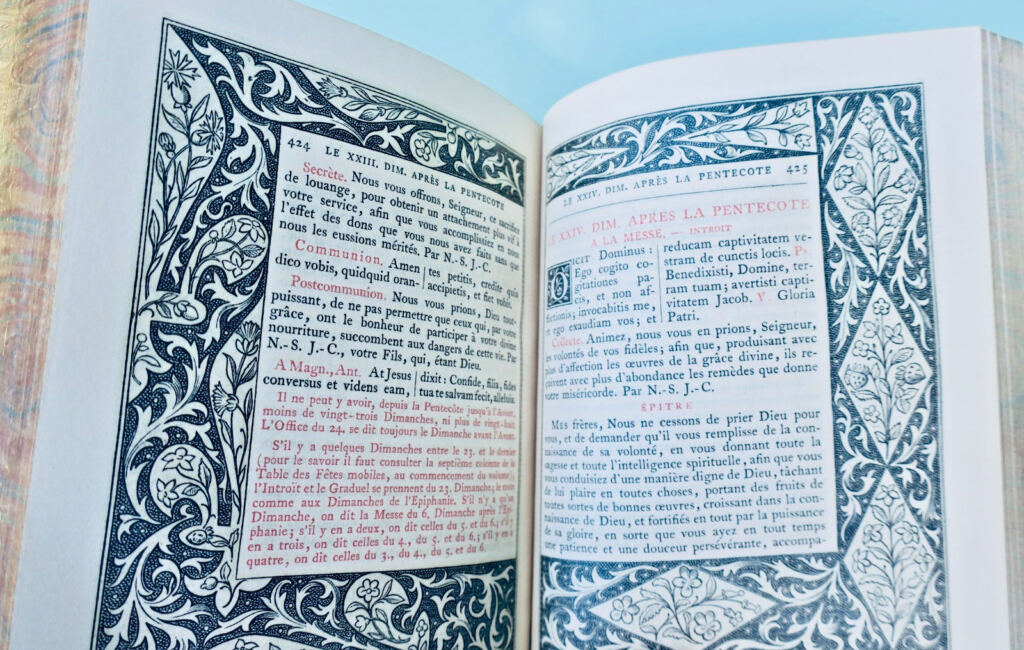 424 LE XXIII. DIM. APRÈS LA PENTECOTE
Secrète. Nous vous offrons, Seigneur, ce sacrifice
de louange, pour obtenir un attachement plus vif à
votre service, afin que vous accomplissiez en nous
l'effet des dons que vous nous avez faits sans que
nous les eussions mérités. Par N.-S. J.-C.
Communion. Amen dico vobis, quidquid oran-
tes petitis, credite quia accipietis, et fiet vobis.
Postcommunion. Nous vous prions, Dieu tout-
puissant, de ne pas permettre que ceux qui, par votre
grâce, ont le bonheur de participer à votre divine
nourriture, succombent aux dangers de cette vie. Par
N.-S. J.-C., votre Fils, qui, étant Dieu.
A Magn., Ant. At Jesus conversus et videns eam,
dixit: Confide, filia, fides tua te salvam fecit, alleluia.
Il ne peut y avoir, depuis la Pentecôte jusqu'à l'Avent,
moins de vingt-trois Dimanches, ni plus de vingt-huit.
L'Office du 24. se dit toujours le Dimanche avant l'Avent.
S'il y a quelques Dimanches entre le 23. et le dernier
(pour le savoir il faut consulter la septième colonne de la
Table des Fêtes mobiles, au commencement du volume)
l'Introit et le Graduel se prennent du 23. Dimanche, le reste
comme aux Dimanches de l'Epiphanie. S'il n'y a qu'un
Dimanche, on dit la Messe du 6. Dimanche après l'Epi-
phanie; s'il y en a deux, on dit celles du 5. et du 6.; s'il y
en a trois, on dit celles du 4., du 5. et du 6.; s'il y en a
quatre, on dit celles du 3., du 4., du 5. et du 6.
LE XXIV. DIM. APRÈS LA PENTECOTE 425
LE XXIV. DIM. APRÈS LA PENTECOTE
A LA MESSE. — INTROIT
DICIT Dominus:
Ego cogito co-
gitationes pa-
cis, et non af-
flictionis; invocabitis me,
et ego exaudiam vos; et
reducam captivitatem ve-
stram de cunctis locis. Ps.
Benedixisti, Domine, ter-
ram tuam; avertisti capti-
vitatem Jacob. V. Gloria
Patri.
Collecte. Animez, nous vous en prions, Seigneur,
les volontés de vos fidèles; afin que, produisant avec
plus d'affection les œuvres de la grâce divine, ils re-
çoivent avec plus d'abondance les remèdes que donne
votre miséricorde. Par N.-S. J.-C.
ÉPITRE
MES frères, Nous ne cessons de prier Dieu pour
vous, et de demander qu'il vous remplisse de la con-
naissance de sa volonté, en vous donnant toute la
sagesse et toute l'intelligence spirituelle, afin que vous
vous conduisiez d'une manière digne de Dieu, tâchant
de lui plaire en toutes choses, portant des fruits de
toutes sortes de bonnes œuvres, croissant dans la con-
naissance de Dieu, et fortifiés en tout par la puissance
de sa gloire, en sorte que vous ayez en tout temps
une patience et une douceur persévérante, accompa-